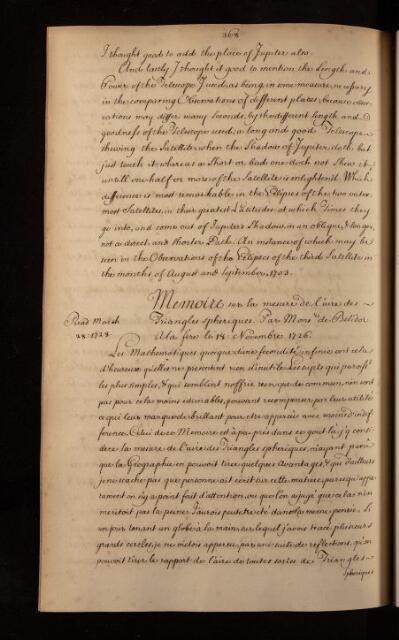 368
I thought good to add the place of Jupiter also.
And lastly I thought it good to mention the Length and
Power of the Telescope I used, as being in some measure necessary
in the comparing Observations of different places, because obser
vations may differ many Seconds, by the different length and
goodness of the Telescope used; a long and good Telescope
shewing the Satellite when the Shadow of Jupiter doth but
just touch it whereas a Short or bad one doth not Shew it
untill one half or more of the Satellite is enlighten'd. Which
difference is most remarkable in the Eclipses of the two outer
most Satellites, in their greatest Latitudes at which Times they
go into, and come out of Jupiters Shadow, in an oblique, & longer,
not a direct and shorter Path. An instance of which may be
seen in the Observations of the Eclipses of the third Satellite in
the months of August and September, 1703.
Memoire sur la mesure de l'aire des
Read March
28. 1728
Triangles spheriques. Par Monsr. de Belidor
A la fere le 18 Novembre 1726.
Les Mathematiques quoique d'une fecondité infinie ont cela
d'heureux qu'elles ne presentent rien d'inutile. Les sujets qui paroiss
les plus simples, & qui semblent n'offrir rien que de commun, n'en sont
pas pour cela moins estimables, pouvant recompenser par leur utilité
ce qui leur manque de brillant pour etre appreciés avec moins d'indif
ference. Celui de ce Memoire est à peu près dans ce gout là; j'y consi
dere la mesure de l'aire des Triangles spheriques, n'ayant paru
que la Geographie en pouvoit tirer quelques Avantages, & que d'ailleurs
je ne sache pas que personne ait écrit sur cette matiere, parcequ'appa
remment on n'y a point fait d'attention, ou que l'on a jugé que cela n'en
meritoit pas la peine. J'aurois peutetre été dans la meme pensée. Si
un jour tenant un globe à la main, sur lequel j'avois tracé plusieurs
grands cercles, je ne m'etois apperceu, par une suite de reflections, qu'on
pouvoit tirer le rapport de l'aire de toutes sortes de Triangles
spheriques